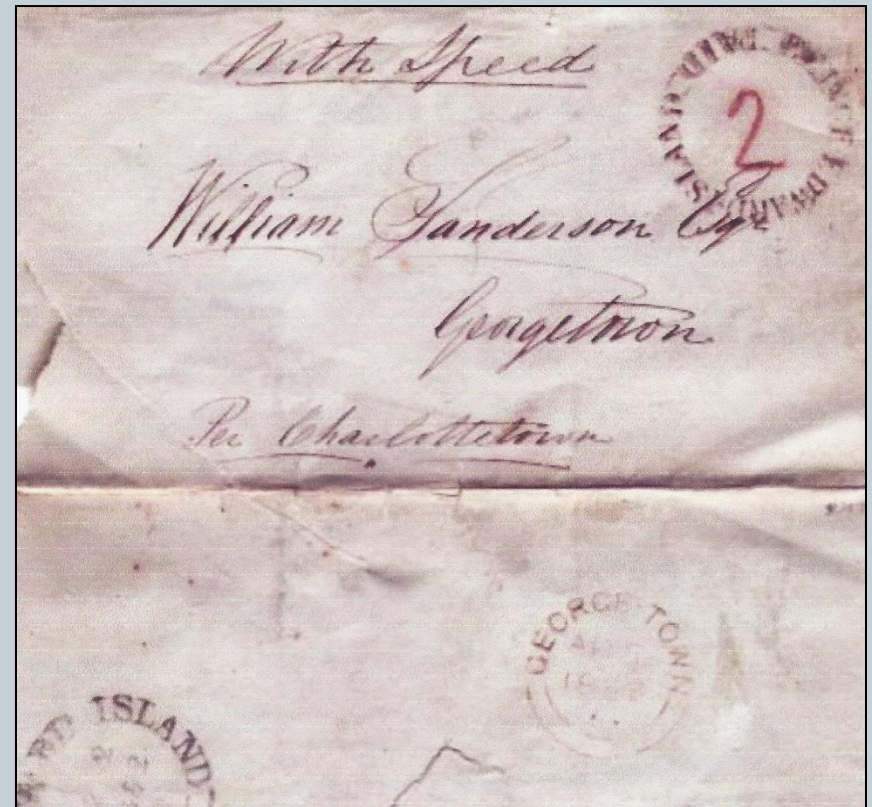 With Speed
PAID. PRINCE EDWARD ISLAND
2
William Sanderson Esqr
Georgetown
Per Charlottetown
GEORGE TOWN
ISLAND